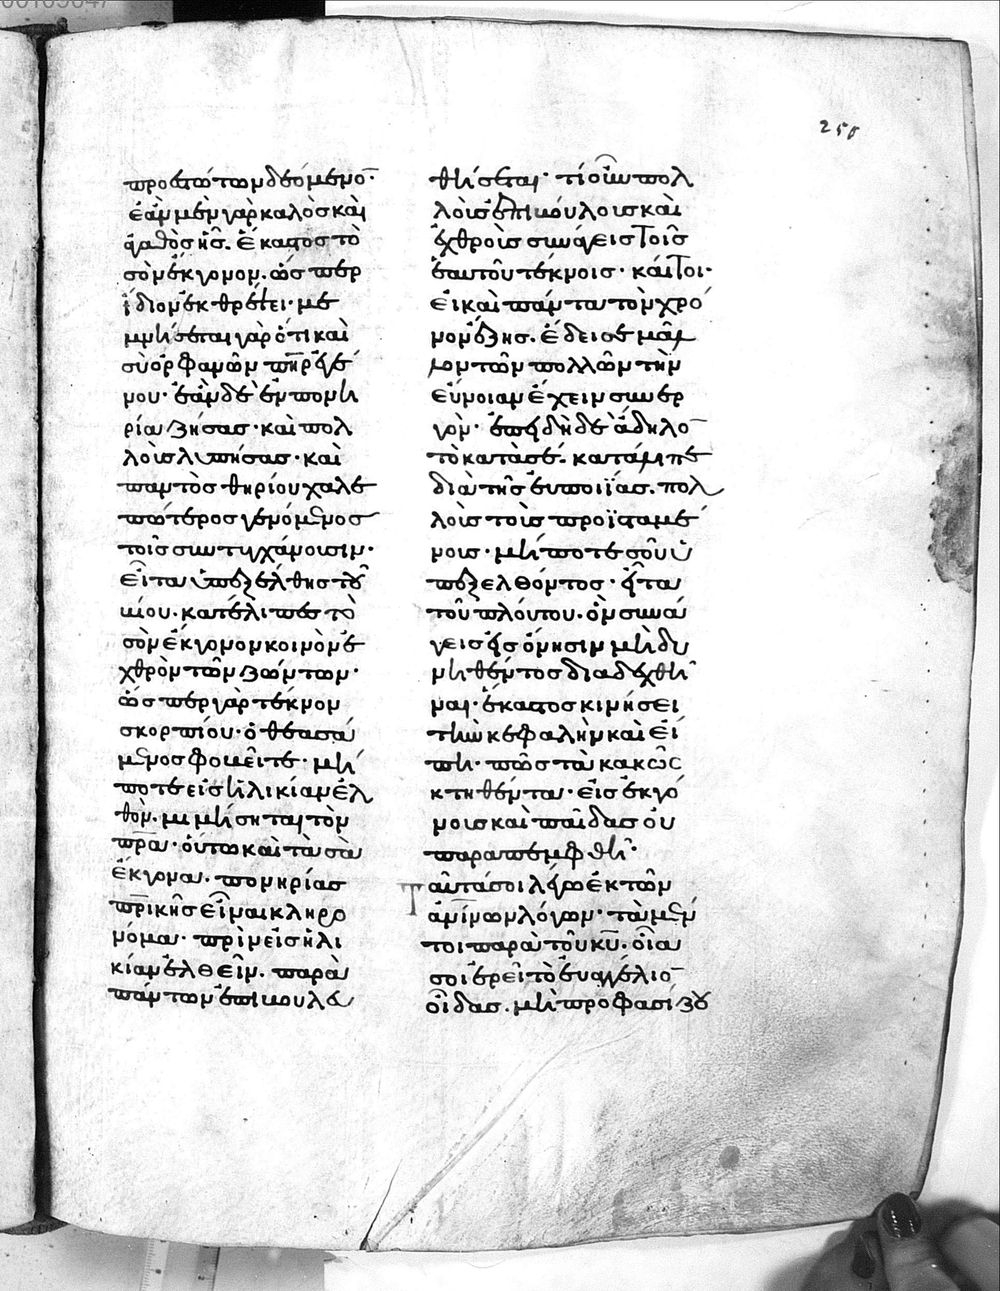 250
προεστώτων δεόμενο̅·
ἐὰν μὲν γὰρ καλὸς καὶ
ἀγαθὸς ῆς. ἕκαστος τὸ
σὸν ἔκγονον. ὡς περ
ἴδιον ἐκθρέψει· με
μνήσεται γὰρ ὅτι καὶ
σὺ ὀρφανῶν π̅η̅ρ ἐγέ
νου· ἐὰν δὲ ἐν πονη
ρία ζήσας· καὶ πολ
λοὺς λυπήσας· καὶ
παντὸς θηρίου χαλε
πώτερος γενόμενος
τοῖς συντυγχάνουσιν·
εἶτα ὑπεξέλθης τοῦ
βίου. κατέλιπες τὸ
σὸν ἔκγονον κοινὸν ἐ
χθρὸν τῶν ζώντων·
ὡς περ γὰρ τέκνον
σκορπίου· ὁ θεασά
μενος φονεῖ τε· μή
ποτε εἰς ἡλικίαν ἐλ
θὸν· μιμήσηται τὸν
π̅ρ̅α· οὕτω καὶ τὰ σὰ
ἔκγονα. πονηρίας
π̅ρικῆς εἶναι κληρο
νόμα· πρὶν εἰς ἡλι
κίαν ἐλθεῖν. παρὰ
πάντων ἐπιβουλευ
θήσεται· τί οὖν πολ
λοὺς ἐπιβούλους καὶ
ἐχθροὺς συνάγεις τοῖς
ἑαυτοῦ τέκνοις· καίτοι·
εἰ καὶ πάντα τὸν χρό
νον ἔζης. ἔδει σε μᾶλ
λον τῶν πολλῶν τὴν
εὔνοιαν ἔχειν συνερ
γὸν· ἐπεὶ δὴ δὲ ἄδηλο̅
τὸ κατὰ σέ. κατάλιπε
διὰ τῆς εὐποιΐας. πολ
λοὺς τοὺς προϊσταμέ
νους· μήποτε σοῦ ὑ
πεξελθόντος· εἶτα
τοῦ πλούτου. ὃν συνά
γεις εἰς ὄνησιν μὴ δυ
νηθέντος διαδεχθῆ
ναι· ἕκαστος κινήσει
τὴν κεφαλὴν καὶ εἴ
πη· πῶς τὰ κακῶς
κτηθέντα· εἰς ἐκγό
νους καὶ παῖδας οὐ
παραπέμφθη·
Ταῦτά σοι λέγω ἐκ τῶν
ἀν̅ίνων λόγων· τὰ μέν
τοι παρὰ τοῦ κ̅υ̅. οἷα
σοι ἐρεῖ τὸ εὐαγγέλιο̅
οἶδας. μὴ προφασίζου